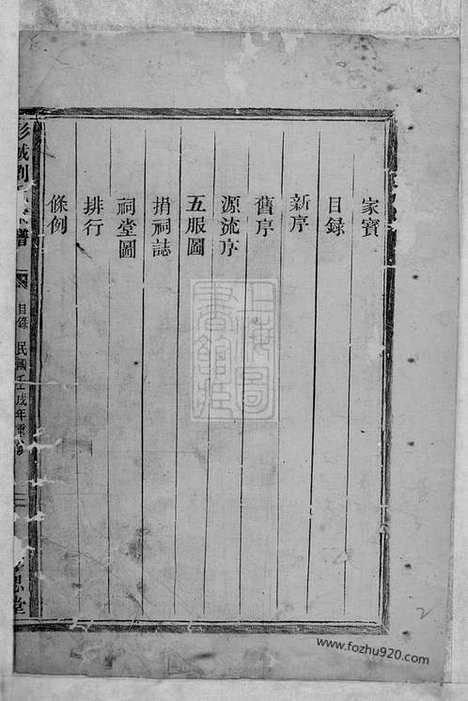 家寶
目錄
新序
舊序
源流序
五服圖
捐祠誌
祠堂圖
排行
條例
彭城劉氏宗譜
目錄
民國壬戌年重修
思堂
上海圖書館藏
www.fozhu920.com
2